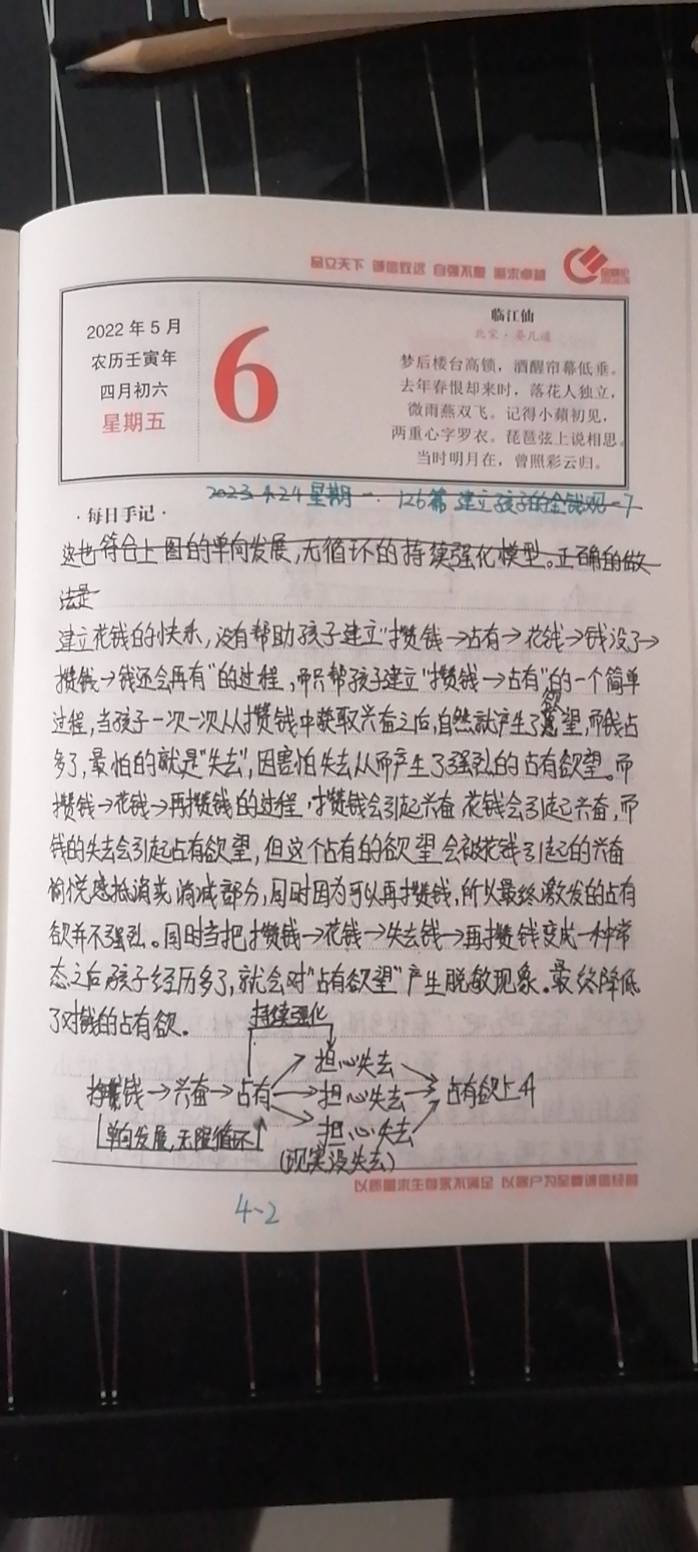 品立天下 诚信致远 自强不息 追求卓越
2022年5月
农历壬寅年
四月初六
星期五
6
临江仙
北宋·晏几道
梦后楼台高锁，酒醒帘幕低垂。
去年春恨却来时，落花人独立，
微雨燕双飞。记得小蘋初见，
两重心字罗衣。琵琶弦上说相思。
当时明月在，曾照彩云归。
2023.4.24 星期一. 126篇 建立孩子的金钱观-7
·每日手记·
这也符合上图的单向发展,无循环的持续强化模型。正确的做
法是
建立花钱的快乐,没有帮助孩子建立"攒钱→占有→花钱→钱没了→
攒钱→钱还会再有"的过程,而只帮孩子建立"攒钱→占有"的一个简单
过程,当孩子一次一次从攒钱中获取兴奋之后,自然就产生了欲望,而钱占
多了,最怕的就是"失去",因害怕失去从而产生了强烈的占有欲望。而
攒钱→花钱→再攒钱的过程,攒钱会引起兴奋 花钱会引起兴奋,而
钱的失去会引起占有欲望,但这个占有的欲望会被花钱引起的兴奋
愉悦感抵消或消减部分,同时因为可以再攒钱,所以最终激发的占有
欲并不强烈。同时当把攒钱→花钱→失去钱→再攒钱变成一种常
态之后孩子经历多了,就会对"占有欲望"产生脱敏现象。最终降低
了对钱的占有欲。
持续强化
担心失去
攒钱→兴奋→占有→担心失去→占有欲上升
担心失去
单向发展,无限循环
(现实没失去)
以质量求生存永不满足 以客户为至尊诚信经营
4-2